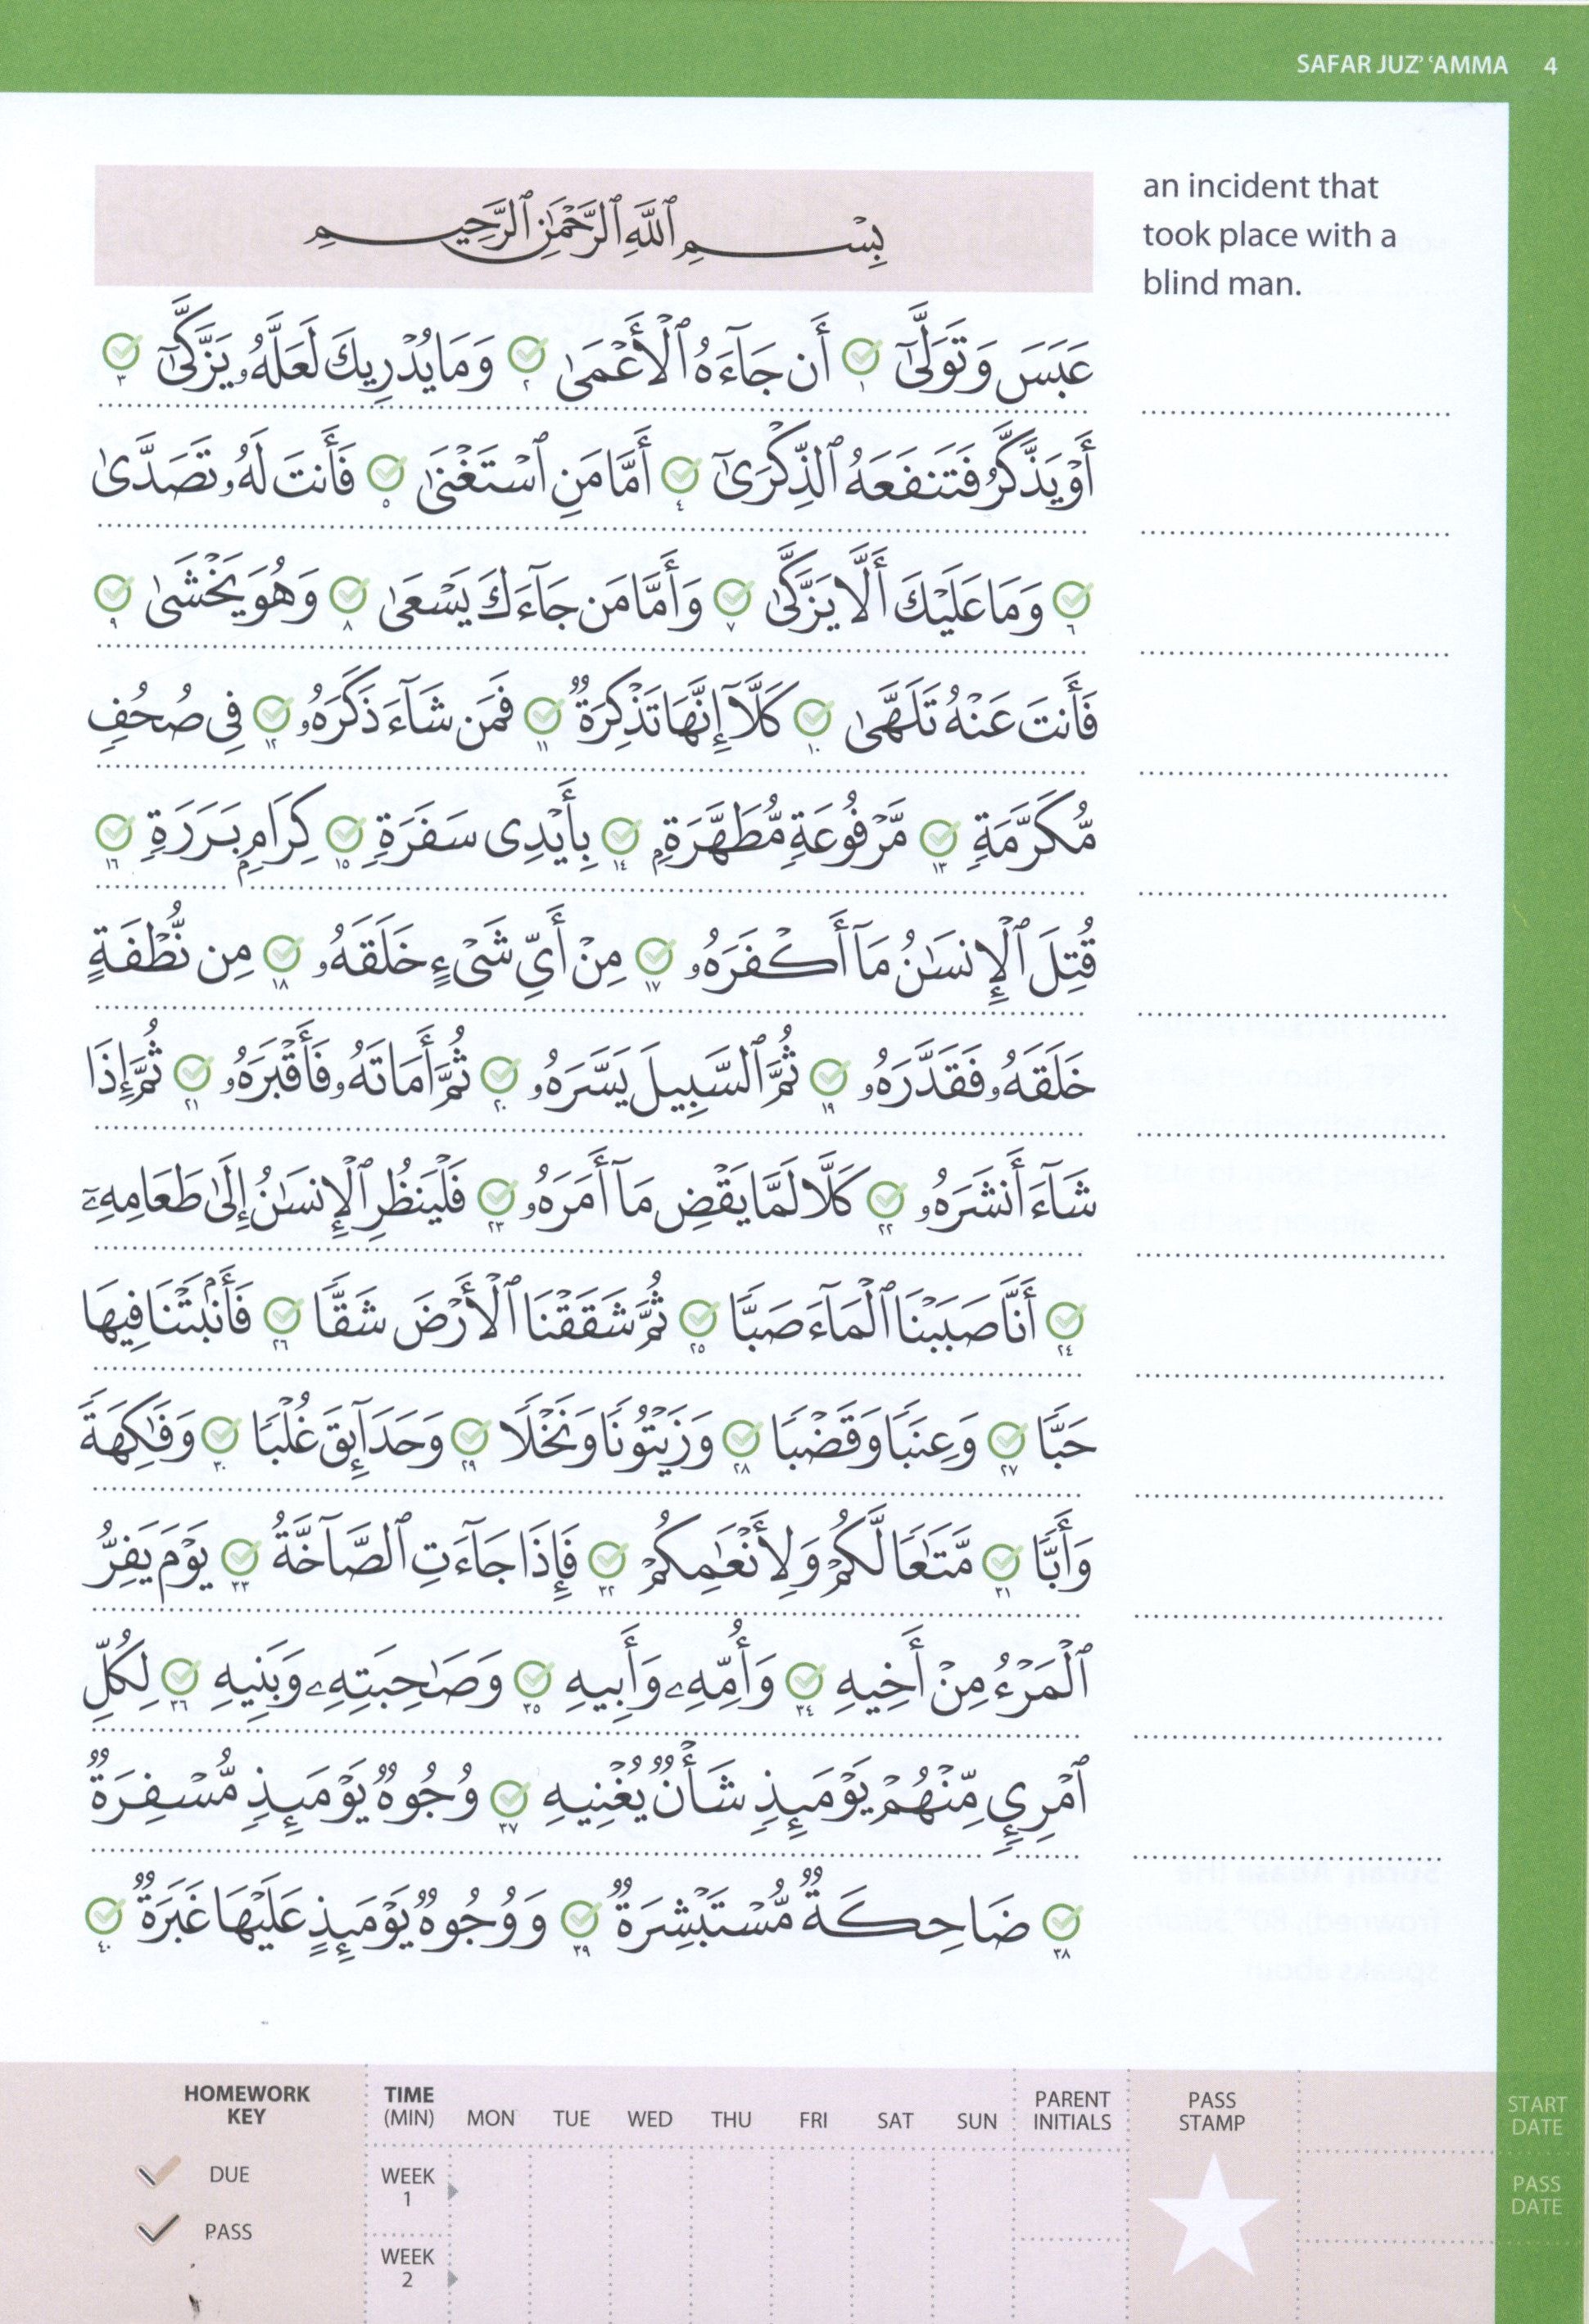 SAFAR JUZ’ ‘AMMA 4
an incident that
took place with a
blind man.
بِسْمِ ٱللَّهِ ٱلرَّحْمَٰنِ ٱلرَّحِيمِ
عَبَسَ وَتَوَلَّىٰٓ ١ أَن جَآءَهُ ٱلْأَعْمَىٰ ٢ وَمَا يُدْرِيكَ لَعَلَّهُۥ يَزَّكَّىٰٓ ٣
أَوْ يَذَّكَّرُ فَتَنفَعَهُ ٱلذِّكْرَىٰٓ ٤ أَمَّا مَنِ ٱسْتَغْنَىٰ ٥ فَأَنتَ لَهُۥ تَصَدَّىٰ
٦ وَمَا عَلَيْكَ أَلَّا يَزَّكَّىٰ ٧ وَأَمَّا مَن جَآءَكَ يَسْعَىٰ ٨ وَهُوَ يَخْشَىٰ ٩
فَأَنتَ عَنْهُ تَلَهَّىٰ ١٠ كَلَّآ إِنَّهَا تَذْكِرَةٌ ١١ فَمَن شَآءَ ذَكَرَهُۥ ١٢ فِى صُحُفٍ
مُّكَرَّمَةٍ ١٣ مَّرْفُوعَةٍ مُّطَهَّرَةٍۭ ١٤ بِأَيْدِى سَفَرَةٍ ١٥ كِرَامٍۭ بَرَرَةٍ ١٦
قُتِلَ ٱلْإِنسَٰنُ مَآ أَكْفَرَهُۥ ١٧ مِنْ أَىِّ شَىْءٍ خَلَقَهُۥ ١٨ مِن نُّطْفَةٍ
خَلَقَهُۥ فَقَدَّرَهُۥ ١٩ ثُمَّ ٱلسَّبِيلَ يَسَّرَهُۥ ٢٠ ثُمَّ أَمَاتَهُۥ فَأَقْبَرَهُۥ ٢١ ثُمَّ إِذَا
شَآءَ أَنشَرَهُۥ ٢٢ كَلَّا لَمَّا يَقْضِ مَآ أَمَرَهُۥ ٢٣ فَلْيَنظُرِ ٱلْإِنسَٰنُ إِلَىٰ طَعَامِهِۦٓ
٢٤ أَنَّا صَبَبْنَا ٱلْمَآءَ صَبًّا ٢٥ ثُمَّ شَقَقْنَا ٱلْأَرْضَ شَقًّا ٢٦ فَأَنۢبَتْنَا فِيهَا
حَبًّا ٢٧ وَعِنَبًا وَقَضْبًا ٢٨ وَزَيْتُونًا وَنَخْلًا ٢٩ وَحَدَآئِقَ غُلْبًا ٣٠ وَفَٰكِهَةً
وَأَبًّا ٣١ مَّتَٰعًا لَّكُمْ وَلِأَنْعَٰمِكُمْ ٣٢ فَإِذَا جَآءَتِ ٱلصَّآخَّةُ ٣٣ يَوْمَ يَفِرُّ
ٱلْمَرْءُ مِنْ أَخِيهِ ٣٤ وَأُمِّهِۦ وَأَبِيهِ ٣٥ وَصَٰحِبَتِهِۦ وَبَنِيهِ ٣٦ لِكُلِّ
ٱمْرِئٍ مِّنْهُمْ يَوْمَئِذٍ شَأْنٌ يُغْنِيهِ ٣٧ وُجُوهٌ يَوْمَئِذٍ مُّسْفِرَةٌ
٣٨ ضَاحِكَةٌ مُّسْتَبْشِرَةٌ ٣٩ وَوُجُوهٌ يَوْمَئِذٍ عَلَيْهَا غَبَرَةٌ ٤٠
HOMEWORK
KEY
DUE
PASS
TIME
(MIN) MON TUE WED THU FRI SAT SUN
WEEK
1
WEEK
2
PARENT
INITIALS
PASS
STAMP
START
DATE
PASS
DATE